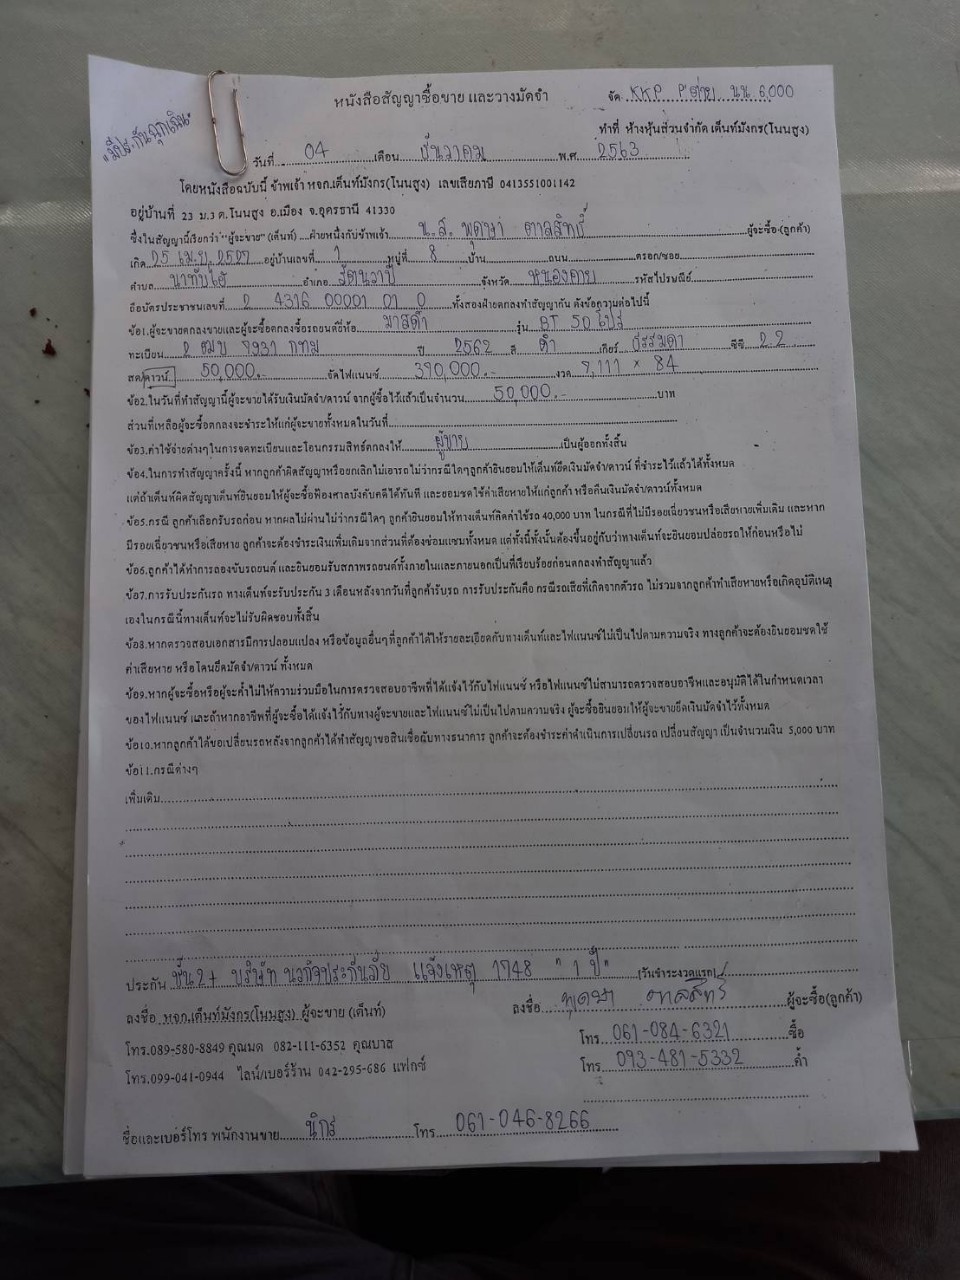 หนังสือสัญญาซื้อขาย และวางมัดจำ
จัด KKP P'ต่าย นน 6,000
"มีประกันฉุกเฉิน"
ทำที่ ห้างหุ้นส่วนจำกัด เต็นท์มังกร(โนนสูง)
วันที่ 04 เดือน ธันวาคม พ.ศ 2563
โดยหนังสือฉบับนี้ ข้าพเจ้า หจก.เต็นท์มังกร(โนนสูง) เลขเสียภาษี 0413551001142
อยู่บ้านที่ 23 ม.3 ต.โนนสูง อ.เมือง จ.อุดรธานี 41330
ซึ่งในสัญญานี้เรียกว่า "ผู้จะขาย" (เต็นท์) ฝ่ายหนึ่งกับข้าพเจ้า น.ส. พฤษา ตาลสิทธิ์ ผู้จะซื้อ (ลูกค้า)
เกิด 25 เม.ย. 2527 อยู่บ้านเลขที่ 1 หมู่ที่ 8 บ้าน ถนน ตรอก/ซอย
ตำบล นาทับไฮ อำเภอ รัตนวาปี จังหวัด หนองคาย รหัสไปรษณีย์
ถือบัตรประชาชนเลขที่ 2 4316 00001 01 0 ทั้งสองฝ่ายตกลงทำสัญญากัน ดังข้อความต่อไปนี้
ข้อ1.ผู้จะขายตกลงขายและผู้จะซื้อตกลงซื้อรถยนต์ยี่ห้อ มาสด้า รุ่น BT 50 โปร
ทะเบียน 2 ฒบ 9931 กทม ปี 2562 สี ดำ เกียร์ ธรรมดา ซีซี 2.2
สด/ดาวน์ 50,000.- จัดไฟแนนซ์ 390,000.- งวด 9,111 × 84
ข้อ2.ในวันที่ทำสัญญานี้ผู้จะขายได้รับเงินมัดจำ/ดาวน์ จากผู้ซื้อไว้แล้วเป็นจำนวน 50,000.- บาท
ส่วนที่เหลือผู้จะซื้อตกลงจะชำระให้แก่ผู้จะขายทั้งหมดในวันที่
ข้อ3.ค่าใช้จ่ายต่างๆในการจดทะเบียนและโอนกรรมสิทธิ์ตกลงให้ ผู้ขาย เป็นผู้ออกทั้งสิ้น
ข้อ4.ในการทำสัญญาครั้งนี้ หากลูกค้าผิดสัญญาหรือยกเลิกไม่เอารถไม่ว่ากรณีใดๆลูกค้ายินยอมให้เต็นท์ยึดเงินมัดจำ/ดาวน์ ที่ชำระไว้แล้วได้ทั้งหมด
แต่ถ้าเต็นท์ผิดสัญญาเต็นท์ยินยอมให้ผู้จะซื้อฟ้องศาลบังคับคดีได้ทันที และยอมชดใช้ค่าเสียหายให้แก่ลูกค้า หรือคืนเงินมัดจำ/ดาวน์ทั้งหมด
ข้อ5.กรณี ลูกค้าเลือกรับรถก่อน หากผลไม่ผ่านไม่ว่ากรณีใดๆ ลูกค้ายินยอมให้ทางเต็นท์คิดค่าใช้รถ 40,000 บาท ในกรณีที่ไม่มีรอยเฉี่ยวชนหรือเสียหายเพิ่มเติม และหาก
มีรอยเฉี่ยวชนหรือเสียหาย ลูกค้าจะต้องชำระเงินเพิ่มเติมจากส่วนที่ต้องซ่อมแซมทั้งหมด แต่ทั้งนี้ทั้งนั้นต้องขึ้นอยู่กับว่าทางเต็นท์จะยินยอมปล่อยรถให้ก่อนหรือไม่
ข้อ6.ลูกค้าได้ทำการลองขับรถยนต์ และยินยอมรับสภาพรถยนต์ทั้งภายในและภายนอกเป็นที่เรียบร้อยก่อนตกลงทำสัญญาแล้ว
ข้อ7.การรับประกันรถ ทางเต็นท์จะรับประกัน 3 เดือนหลังจากวันที่ลูกค้ารับรถ การรับประกันคือ กรณีรถเสียที่เกิดจากตัวรถ ไม่รวมจากลูกค้าทำเสียหายหรือเกิดอุบัติเหตุ
เองในกรณีนี้ทางเต็นท์จะไม่รับผิดชอบทั้งสิ้น
ข้อ8.หากตรวจสอบเอกสารมีการปลอมแปลง หรือข้อมูลอื่นๆที่ลูกค้าได้ให้รายละเอียดกับทางเต็นท์และไฟแนนซ์ไม่เป็นไปตามความจริง ทางลูกค้าจะต้องยินยอมชดใช้
ค่าเสียหาย หรือโดนยึดมัดจำ/ดาวน์ ทั้งหมด
ข้อ9.หากผู้จะซื้อหรือผู้จะค้ำไม่ให้ความร่วมมือในการตรวจสอบอาชีพที่ได้แจ้งไว้กับไฟแนนซ์ หรือไฟแนนซ์ไม่สามารถตรวจสอบอาชีพและอนุมัติได้ในกำหนดเวลา
ของไฟแนนซ์ และถ้าหากอาชีพที่ผู้จะซื้อได้แจ้งไว้กับทางผู้จะขายและไฟแนนซ์ไม่เป็นไปตามความจริง ผู้จะซื้อยินยอมให้ผู้จะขายยึดเงินมัดจำไว้ทั้งหมด
ข้อ10.หากลูกค้าได้ขอเปลี่ยนรถหลังจากลูกค้าได้ทำสัญญาขอสินเชื่อฉับทางธนาคาร ลูกค้าจะต้องชำระค่าดำเนินการเปลี่ยนรถ เปลี่ยนสัญญา เป็นจำนวนเงิน 5,000 บาท
ข้อ11.กรณีต่างๆ
เพิ่มเติม
ประกัน ชั้น2+ บริษัท นวกิจประกันภัย แจ้งเหตุ 1748 "1 ปี" (วันชำระงวดแรก)
ลงชื่อ หจก.เต็นท์มังกร(โนนสูง) ผู้จะขาย (เต็นท์) ลงชื่อ พฤษา ตาลสิทธิ์ ผู้จะซื้อ(ลูกค้า)
โทร.089-580-8849 คุณมด 082-111-6352 คุณบาส โทร 061-084-6321 ซื้อ
โทร.099-041-0944 ไลน์/เบอร์ร้าน 042-295-686 แฟกซ์ โทร 093-481-5332 ค้ำ
ชื่อและเบอร์โทร พนักงานขาย นิกร โทร 061-046-8266